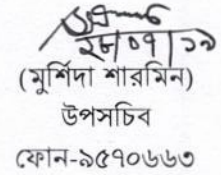 ২৮/০৭/১৯
(মুর্শিদা শারমিন)
উপসচিব
ফোন-৯৫৭০৬৬৩